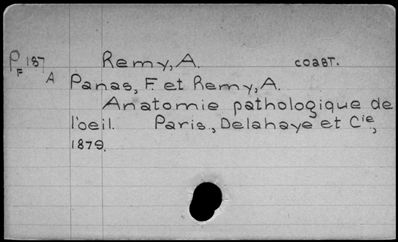 Remy, A. COABT.
P F 187 A
Panas, F. et Remy, A.
Anatomie pathologique de
l'oeil. Paris., Delahaye et Cie,
1879.